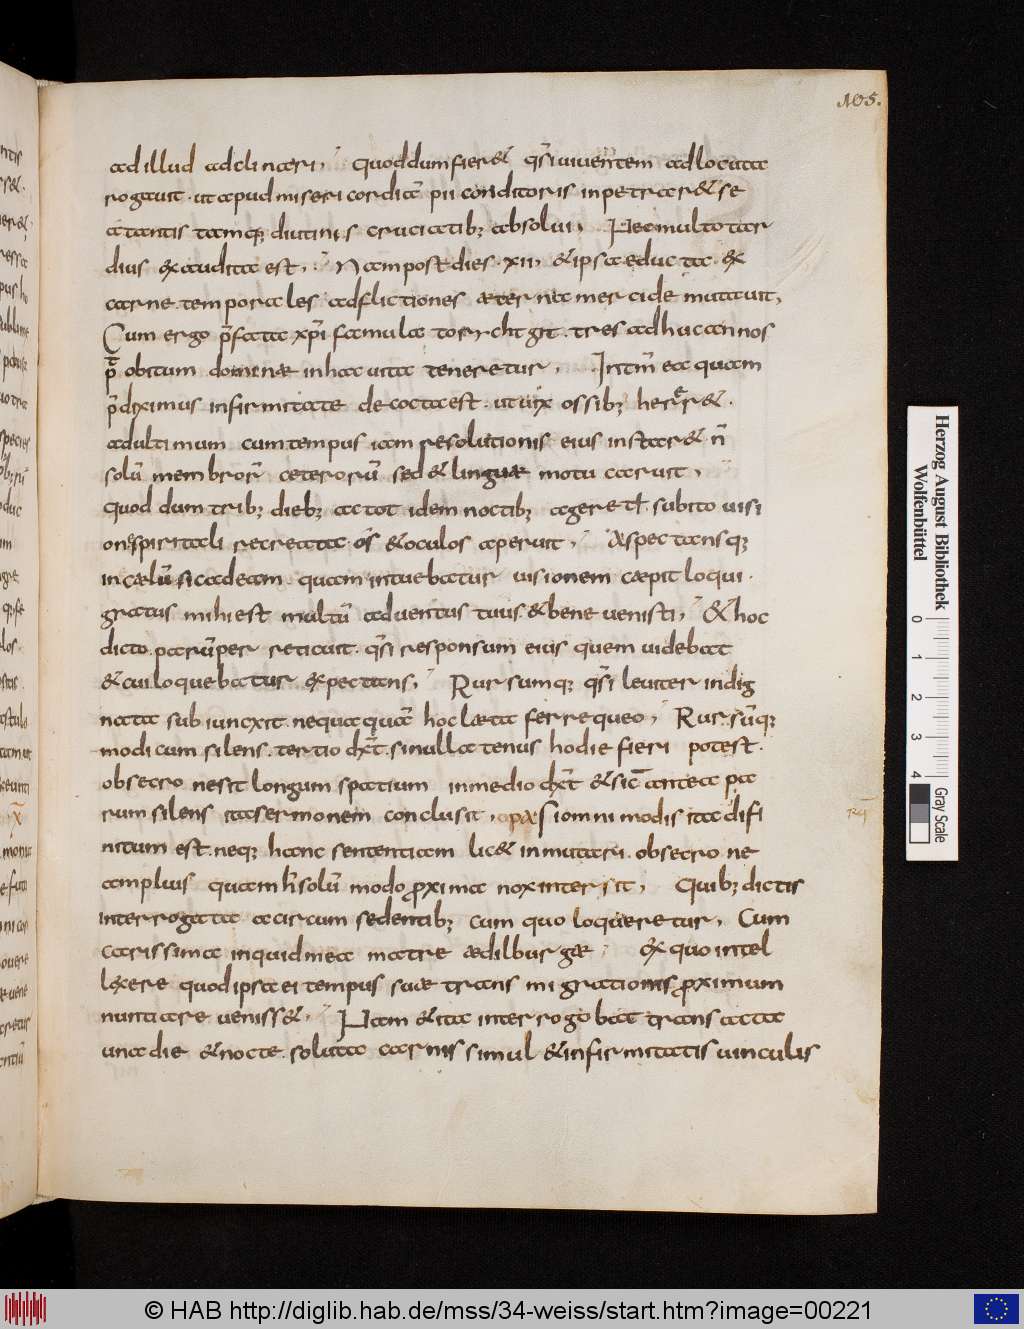 105.
ad illud adclinari, Quod dum fier& q̄si uiuentem adlocuta
rogauit · ut apud misericordiā pii conditoris inpetrar& se
a tantis tamq; diutinis cruciatib; absolui, Nec multo tar
dius exaudita est, Nam post dies · xii, & ipsa educta · ex
carne temporales adflictiones aeterna mercide mutauit,
Cum ergo p̄fata xp̄i famula torchtgit · tres adhuc annos
p̄ obitum dominae in hac uita teneretur, Intm̄ ea quam
p̄diximus infirmitate decocta est · ut uix ossib; herer& ·
ad ultimum cum tempus iam resolutionis eius instar& n̄
solū membrorū ceterorū sed & linguae motu caruit,
quod dum trib; dieb; ac tot idem noctib; ager&ur subito uisi
one spiritali recreata · os & oculos aperuit, Aspectansq;
in caelū sic ad eam quam intuebatur uisionem caepit loqui ·
gratus mihi est multū aduentus tuus & bene uenisti, & hoc
dicto parūper reticuit · q̄si responsum eius quem uidebat
& cui loquebatur expectans, Rursumq; q̄si leuiter indig
nata subiunxit nequaquā hoc laeta ferre queo, Rursūq;
modicum silens · tertio dxt · si nulla tenus hodie fieri potest ·
obsecro ne sit longum spatium in medio dxt & sic antea pa
rum silens ita sermonem conclusit, Si omnimodis ita difi
nitum est neq; hanc sententiam lic& inmutari · obsecro ne
amplius quam h̄ solū modo proxima nox intersit, Quib; dictis
interrogata a circumsedentib; cum quo loqueretur, Cum
carissima inquid mea matre aedilburgae, ex quo intel
lexere quod ipsa ei tempus suae transmigrationis proximum
nuntiare ueniss&, Nam & ita interrogobat transacta
una die & nocte soluta carnis simul & infirmitatis uinculis
Herzog August Bibliothek
Wolfenbüttel
0 1 2 3 4
Gray Scale
© HAB http://diglib.hab.de/mss/34-weiss/start.htm?image=00221